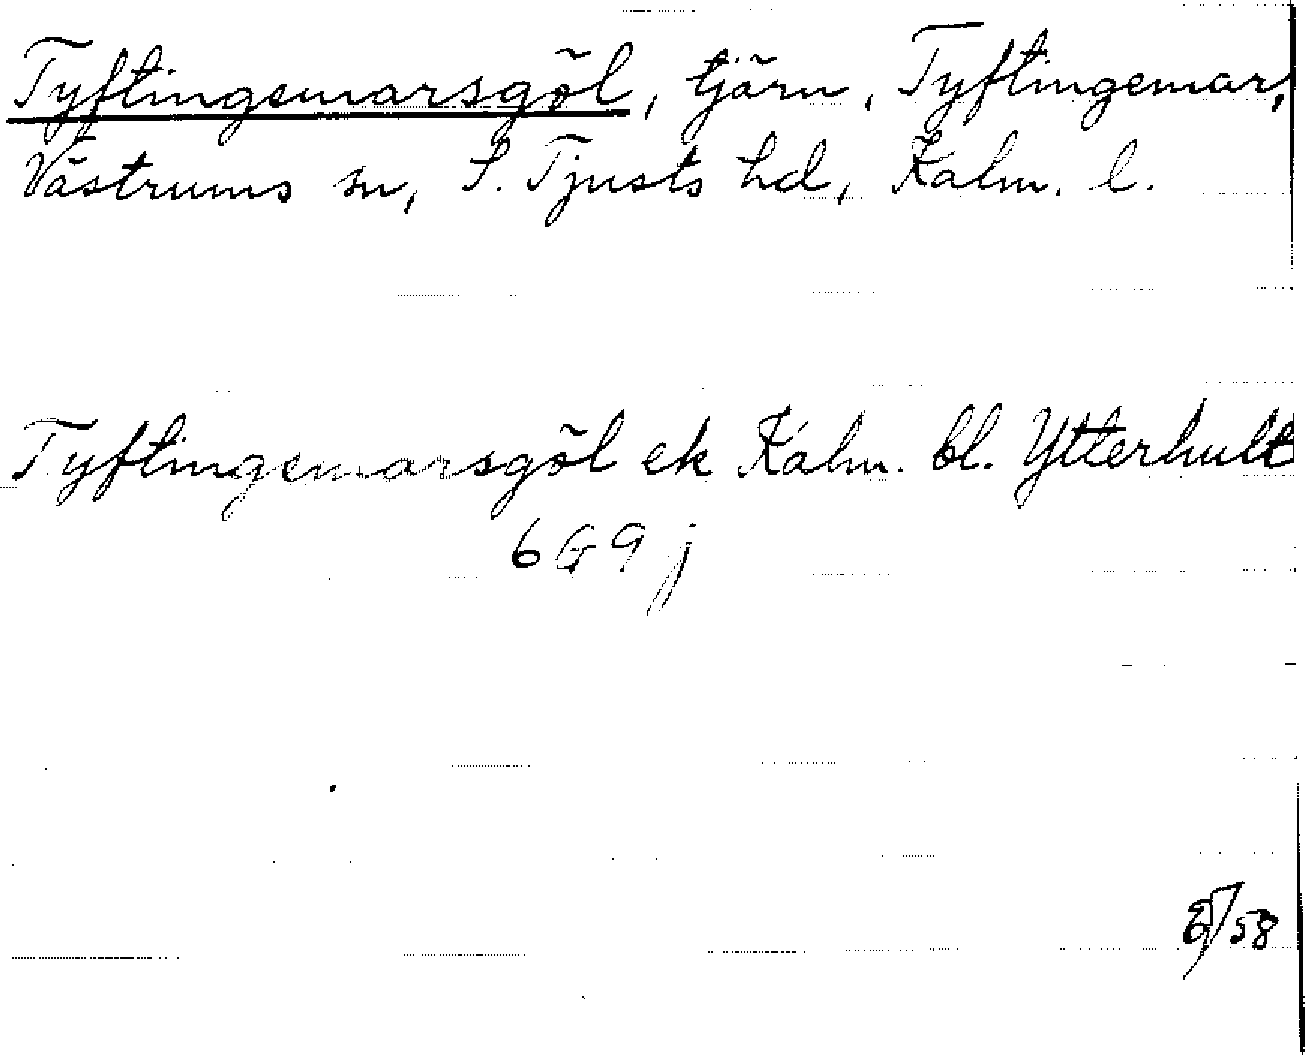 Tyftingemarsgöl, tjärn, Tyftingemar,
Västrums sn, S. Tjusts hd, Kalm. l.
Tyftingemarsgöl ek Kalm. bl. Ytterhult
6 G 9 j
/58